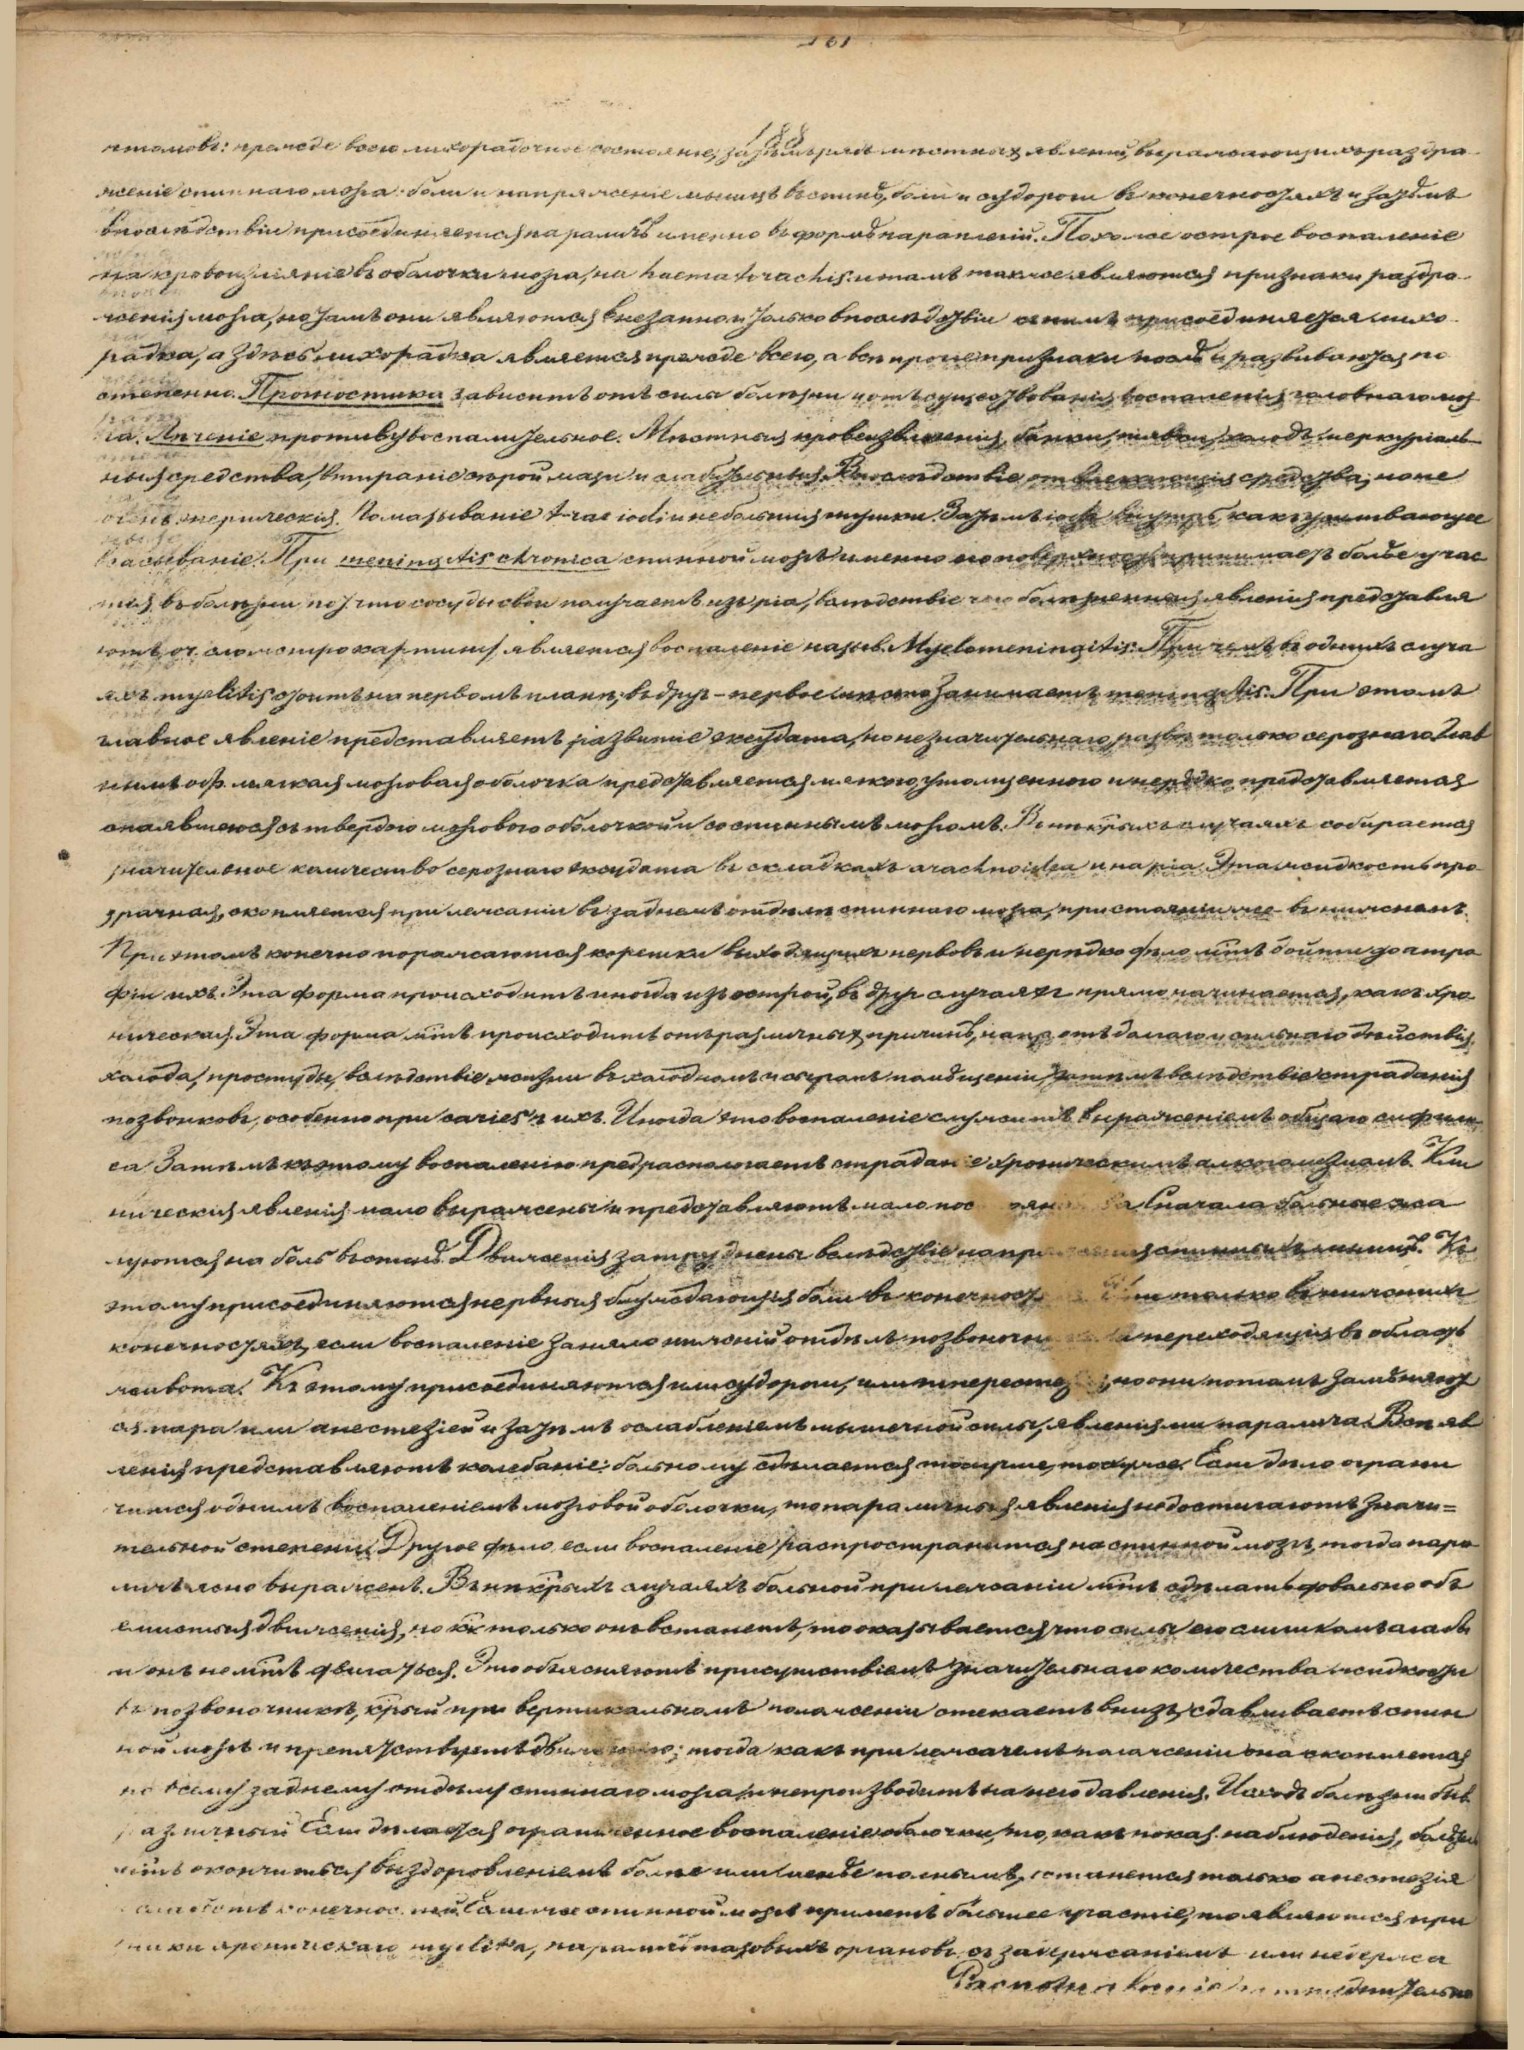 188
птомовъ: прежде всего лихорадочное состояніе, затѣмъ рядъ мѣстныхъ явленій, выражающихъ раздра-
женіе спиннаго мозга: боли и напряженіе мышцъ въ спинѣ, боли и судороги въ конечностяхъ и затѣмъ
впослѣдствіи присоединяется параличъ именно въ формѣ параплегіи. Похоже острое воспаленіе
на кровоизліяніе въ оболочки мозга, на haematorrachis: и тамъ также являются признаки раздра-
женія мозга, но тамъ они являются внезапно и только впослѣдствіи къ нимъ присоединяется лихо-
радка, а здѣсь лихорадка является прежде всего, а всѣ прочіе признаки послѣ и развиваются по
степенно. Прогностика зависитъ отъ силы болѣзни и отъ существованія воспаленія головнаго моз
га. Лѣченіе противувоспалительное. Мѣстныя кровеизвлеченія, банки, піявки, холодъ, меркуріаль-
ныя средства, втираніе сѣрой мази и слабительныя. Впослѣдствіе отвлекающія средства, но не
очень энергическія. Помазываніе t-rae iodi и небольшія мушки. Затѣмъ іодъ внутрь какъ усиливающее
всасываніе. При meningitis chronica спинной мозгъ именно его поверхность принимаетъ болѣе учас
тія въ болѣзни п. ч. что сосуды свои получаетъ изъ pia, вслѣдствіе чего болѣзненныя явленія представля
ютъ оч. пеструю картину, является воспаленіе назыв. Myelomeningitis. При чемъ въ однихъ случа
яхъ myelitis стоитъ на первомъ планѣ, въ друг- первое мѣсто занимаетъ meningitis. При этомъ
главное явленіе представляетъ развитіе эксудата, но не значительнаго, развѣ только серознаго. Глав
нымъ обр. мягкая мозговая оболочка представляется мягкою, утолщенною и нерѣдко представляется
спаявшеюся съ твердою мозговою оболочкой и со спиннымъ мозгомъ. Въ нѣкрыхъ случаяхъ собирается
значительное количество серознаго эксудата въ складкахъ arachnoidea и на pia. Эта жидкость про-
зрачная, скопляется при лежаніи въ заднемъ отдѣлѣ спиннаго мозга, при стояніи же- въ нижнемъ.
При этомъ конечно поражаются корешки выходящихъ нервовъ и нерѣдко дѣло мтъ дойти до атро
фіи ихъ. Эта форма происходитъ иногда изъ острой, въ друг случаяхъ прямо начинается, какъ хро-
ническая. Эта форма мтъ происходить отъ различныхъ причинъ, напр. отъ долгаго и сильнаго дѣйствія
холода, простуды, вслѣдствіе жизни въ холодномъ и сыромъ помѣщеніи, затѣмъ вслѣдствіе страданія
позвонковъ, особенно при caries'ѣ ихъ. Иногда это воспаленіе служитъ выраженіемъ общаго сифили-
са. Затѣмъ къ этому воспаленію предрасполагаетъ страданіе хроническимъ алкоголизмомъ. Кли
ническія явленія мало выражены и представляютъ мало пос оян Сначала больные жа
луются на боль въ спинѣ. Движенія затруднены вслѣдствіе напряженія спинныхъ мышцъ. Къ
этому присоединяются нервныя блуждающія боли въ конечност или только въ нижнихъ
конечностяхъ, если воспаленіе заняло нижній отдѣлъ позвоночни переходящія въ область
живота. Къ этому присоединяются или судороги, или гиперестезіи, но они потомъ замѣняют
ся пара или анестезіей и затѣмъ ослабленіемъ мышечной силы, явленіями паралича. Всѣ яв
ленія представляютъ колебаніе: больному сдѣлается то лучше, то хуже. Если дѣло ограни
чится однимъ воспаленіемъ мозговой оболочки, то параличныя явленія не достигаютъ значи=
тельной степени. Другое дѣло если воспаленіе распространится на спинной мозгъ, тогда пара
личъ ясно выраженъ. Въ нѣкрыхъ случаяхъ больной при лежаніи мтъ сдѣлать довольно объ
емистыя движенія, но кк только онъ встанетъ, то оказывается что силы его слишкомъ слабы
и онъ не мтъ двигаться. Это объясняютъ присутствіемъ значительнаго количества жидкости
въ позвоночникѣ, крый при вертикальномъ положеніи стекаетъ внизъ, сдавливаетъ спин
ной мозгъ и препятствуетъ движенію; тогда какъ при лежачемъ положеніи она скопляется
по всему заднему отдѣлу спиннаго мозга и не производитъ на него давленія. Исходъ болѣзни быв
различный. Если дѣлается ограниченное воспаленіе оболочки, то, какъ показ. наблюденія, болѣзнь
мтъ окончиться выздоровленіемъ болѣе или менѣе полнымъ, останется только анестезія
слабость конечностей. Если же спинной мозгъ приметъ большее участіе, то являются при
знаки хроническаго myelit'a, параличъ тазовыхъ органовъ съ задержаніемъ или недержа